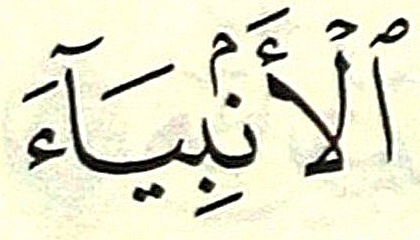 ٱلْأَنۢبِيَآءَ